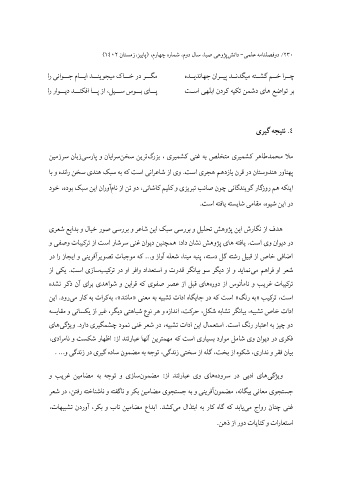 ۲۳۰/ دوفصلنامه علمی- دانش‌پژوهی صبا، سال دوم، شماره چهارم، (پاییز، زمستان ۱۴۰۲)
چـرا خـم گشـته میگدنـد پیـران جهاندیـده مگـر در خـاک میجوینـد ایـام جـوانی را
بر تواضع های دشمن تکیه کردن ابلهی اسـت پـای بـوس سـیل، از پـا افکنـد دیـوار را
۴. نتیجه گیری
ملا محمدطاهر کشمیری متخلص به غنی کشمیری ، بزرگ‌ترین سخن‌سرایان و پارسی‌زبان سرزمین
پهناور هندوستان در قرن یازدهم هجری است. وی از شاعرانی است که به سبک هندی سخن رانده و با
اینکه هم روزگار گویندگانی چون صائب تبریزی و کلیم کاشانی، دو تن از نام‌آوران این سبک بوده، خود
در این شیوه، مقامی شایسته یافته است.
هدف از نگارش این پژوهش تحلیل و بررسی سبک این شاعر و بررسی صور خیال و بدایع شعری
در دیوان وی است. یافته های پژوهش نشان داد: همچنین دیوان غنی سرشار است از ترکیبات وصفی و
اضافی خاص از قبیل رشته گل دسته، پنبه مینا، شعله آواز و... که موجبات تصویرآفرینی و ایجاز را در
شعر او فراهم می‌نماید و از دیگر سو بیانگر قدرت و استعداد وافر او در ترکیب‌سازی است. یکی از
ترکیبات غریب و نامأنوس از دوره‌های قبل از عصر صفوی که قراین و شواهدی برای آن ذکر نشده
است، ترکیب «به رنگ» است که در جایگاه ادات تشبیه به معنی «مانند»، به‌کرات به کار می‌رود. این
ادات خاص تشبیه، بیانگر تشابه شکل، حرکت، اندازه و هر نوع شباهتی دیگر، غیر از یکسانی و مقایسه
دو چیز به اعتبار رنگ است. استعمال این ادات تشبیه، در شعر غنی نمود چشمگیری دارد. ویژگی‌های
فکری در دیوان وی شامل موارد بسیاری است که مهمترین آنها عبارتند از: اظهار شکست و نامرادی،
بیان فقر و نداری، شکوه از بخت، گله از سختی زندگی، توجه به مضمون ساده گیری در زندگی و.....
ویژگی‌های ادبی در سروده‌های وی عبارتند از: مضمون‌سازی و توجه به مضامین غریب و
جستجوی معانی بیگانه، مضمون‌آفرینی و به جستجوی مضامین بکر و ناگفته و ناشناخته رفتن، در شعر
غنی چنان رواج می‌یابد که گاه کار به ابتذال می‌کشد. ابداع مضامین ناب و بکر، آوردن تشبیهات،
استعارات و کنایات دور از ذهن.